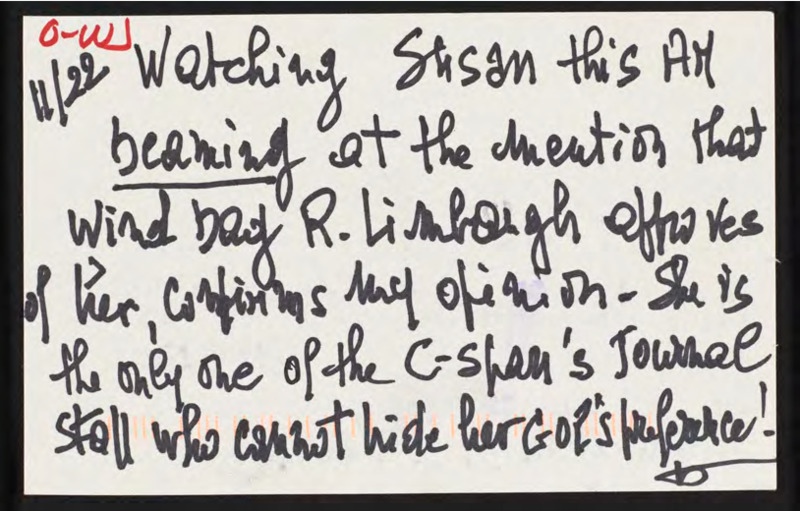 O-WJ
11/22 Watching Susan this AM
beaming at the mention that
wind bag R. Limbaugh approves
of her, confirms my opinion - She is
the only one of the C-span's Journal
staff who cannot hide her G.O.P.'s preference!